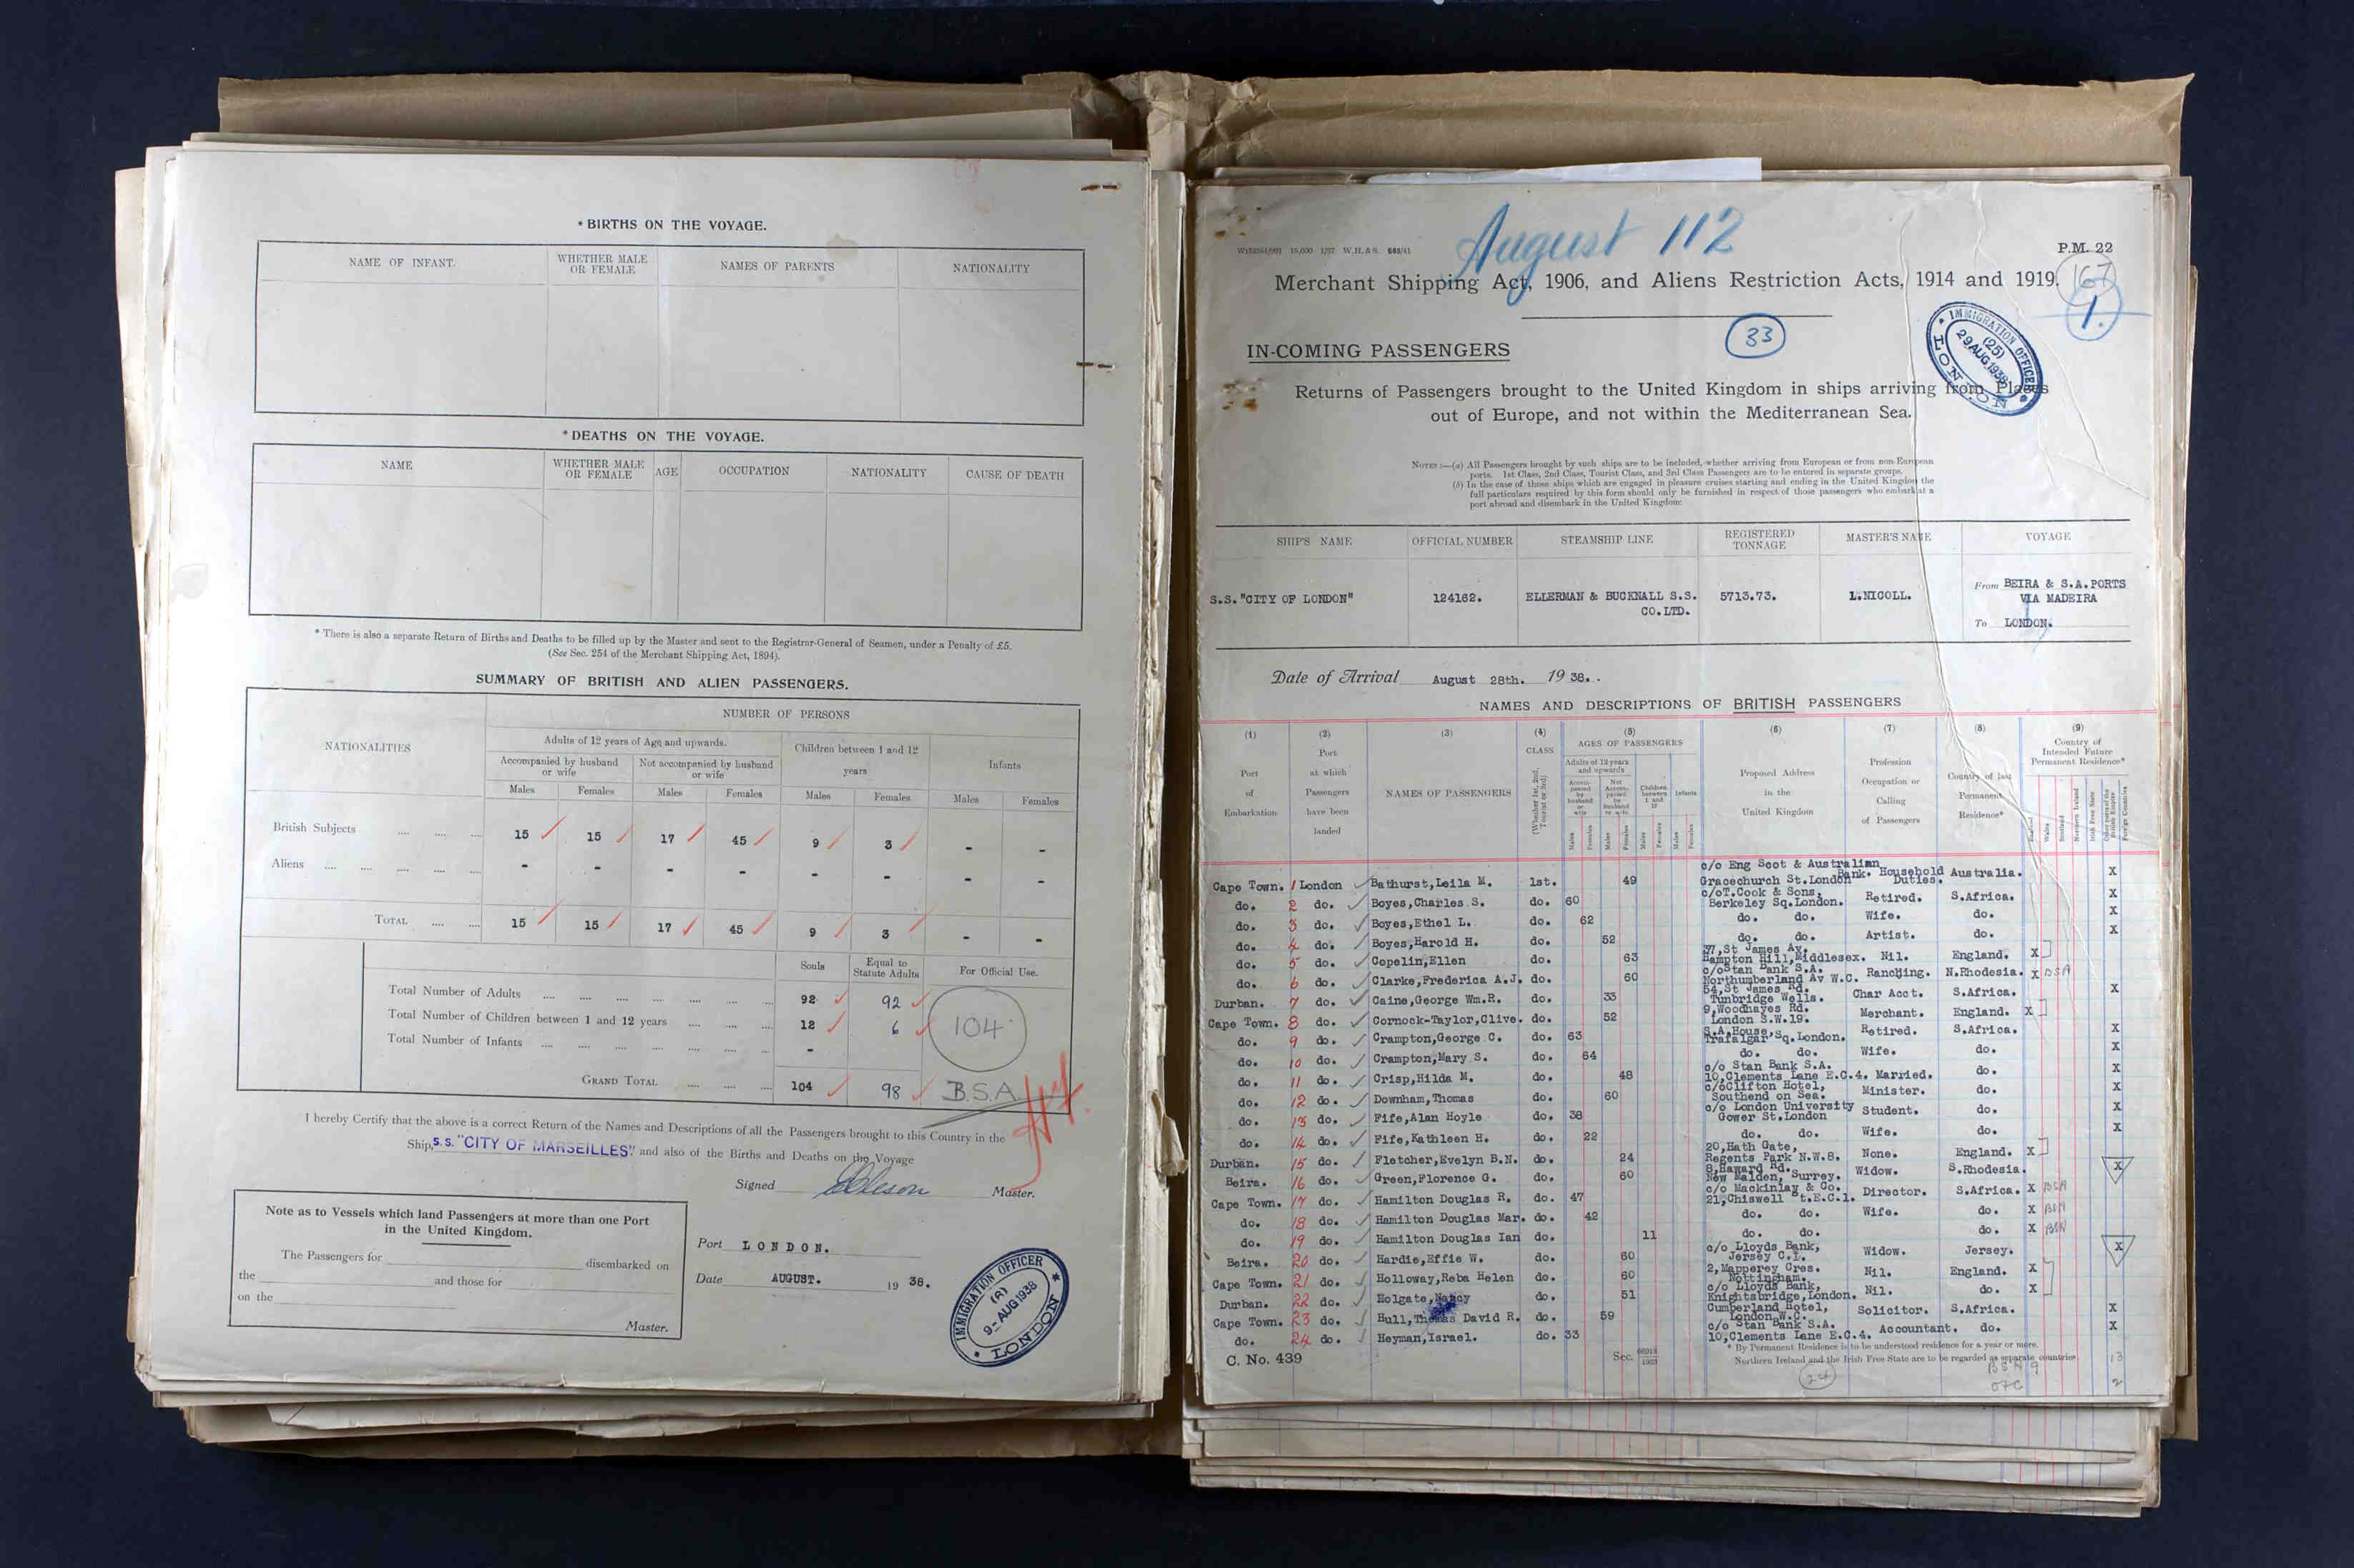 * BIRTHS ON THE VOYAGE.
NAME OF INFANT.
WHETHER MALE OR FEMALE
NAMES OF PARENTS
NATIONALITY
* DEATHS ON THE VOYAGE.
NAME
WHETHER MALE OR FEMALE
AGE
OCCUPATION
NATIONALITY
CAUSE OF DEATH
* There is also a separate Return of Births and Deaths to be filled up by the Master and sent to the Registrar-General of Seamen, under a Penalty of £5.
(See Sec. 254 of the Merchant Shipping Act, 1894).
SUMMARY OF BRITISH AND ALIEN PASSENGERS.
NATIONALITIES
NUMBER OF PERSONS
Adults of 12 years of Age and upwards.
Children between 1 and 12 years
Infants
Accompanied by husband or wife
Not accompanied by husband or wife
Males Females Males Females Males Females Males Females
British Subjects .... .... .... 15 15 17 45 9 3 - -
Aliens .... .... .... .... .... - - - - - - - -
TOTAL .... .... 15 15 17 45 9 3 - -
Souls
Equal to Statute Adults
For Official Use.
Total Number of Adults 92 92
Total Number of Children between 1 and 12 years 12 6
104
Total Number of Infants -
GRAND TOTAL 104 98 B.S.A.
I hereby Certify that the above is a correct Return of the Names and Descriptions of all the Passengers brought to this Country in the
Ship, S.S. "CITY OF MARSEILLES" and also of the Births and Deaths on the Voyage
Signed Master.
Note as to Vessels which land Passengers at more than one Port
in the United Kingdom.
The Passengers for disembarked on
the and those for
on the
Master.
Port LONDON.
Date AUGUST. 19 38.
IMMIGRATION OFFICER
(A)
9- AUG 1938
* LONDON *
August 112
15,000 1/37 W.H.& S.
P.M. 22
Merchant Shipping Act, 1906, and Aliens Restriction Acts, 1914 and 1919.
167
1.
33
IN-COMING PASSENGERS
* IMMIGRATION OFFICER *
(25)
29 AUG 1938
LONDON
Returns of Passengers brought to the United Kingdom in ships arriving from Places
out of Europe, and not within the Mediterranean Sea.
NOTES :—(a) All Passengers brought by such ships are to be included, whether arriving from European or from non-European
ports. 1st Class, 2nd Class, Tourist Class, and 3rd Class Passengers are to be entered in separate groups.
(b) In the case of those ships which are engaged in pleasure cruises starting and ending in the United Kingdom the
full particulars required by this form should only be furnished in respect of those passengers who embark at a
port abroad and disembark in the United Kingdom.
SHIP'S NAME
OFFICIAL NUMBER
STEAMSHIP LINE
REGISTERED TONNAGE
MASTER'S NAME
VOYAGE
S.S."CITY OF LONDON"
124162.
ELLERMAN & BUCKNALL S.S.
CO.LTD.
5713.73.
L.NICOLL.
From BEIRA & S.A.PORTS
VIA MADEIRA
To LONDON.
Date of Arrival August 28th. 19 38.
NAMES AND DESCRIPTIONS OF BRITISH PASSENGERS
(1) Port of Embarkation
(2) Port at which Passengers have been landed
(3) NAMES OF PASSENGERS
(4) CLASS (Whether 1st, 2nd, Tourist or 3rd)
(5) AGES OF PASSENGERS
Adults of 12 years and upwards
Accompanied by husband or wife
Not Accompanied by husband or wife
Children between 1 and 12
Infants
Males Females Males Females Males Females Males Females
(6) Proposed Address in the United Kingdom
(7) Profession Occupation or Calling of Passengers
(8) Country of last Permanent Residence*
(9) Country of Intended Future Permanent Residence*
England Wales Scotland Northern Ireland Irish Free State Other parts of the British Empire Foreign Countries
Cape Town. 1 London Bathurst,Leila M. 1st. 49 c/o Eng Scot & Australian Bank. Gracechurch St.London Household Duties. Australia. X
do. 2 do. Boyes,Charles S. do. 60 c/oT.Cook & Sons, Berkeley Sq.London. Retired. S.Africa. X
do. 3 do. Boyes,Ethel L. do. 62 do. do. Wife. do. X
do. 4 do. Boyes,Harold H. do. 52 do. do. Artist. do. X
do. 5 do. Copelin,Ellen do. 63 37,St James Av. Hampton Hill,Middlesex. Nil. England. X
do. 6 do. Clarke,Frederica A.J. do. 60 c/oStan Bank S.A. Northumberland Av W.C. Ranching. N.Rhodesia. X BSA
Durban. 7 do. Caine,George Wm.R. do. 33 54,St James Rd. Tunbridge Wells. Char Acct. S.Africa. X
Cape Town. 8 do. Cornock-Taylor,Clive. do. 52 9,Woodhayes Rd. London S.W.19. Merchant. England. X
do. 9 do. Crampton,George C. do. 63 S.A.House, Trafalgar Sq.London. Retired. S.Africa. X
do. 10 do. Crampton,Mary S. do. 64 do. do. Wife. do. X
do. 11 do. Crisp,Hilda M. do. 48 c/o Stan Bank S.A. 10,Clements Lane E.C.4. Married. do. X
do. 12 do. Downham,Thomas do. 60 c/oClifton Hotel, Southend on Sea. Minister. do. X
do. 13 do. Fife,Alan Hoyle do. 38 c/o London University Gower St.London Student. do. X
do. 14 do. Fife,Kathleen H. do. 22 do. do. Wife. do. X
Durban. 15 do. Fletcher,Evelyn B.N. do. 24 20,Hath Gate, Regents Park N.W.8. None. England. X
Beira. 16 do. Green,Florence G. do. 60 8,Haward Rd. New Malden, Surrey. Widow. S.Rhodesia. X
Cape Town. 17 do. Hamilton Douglas R. do. 47 c/o Mackinlay & Co. 21,Chiswell St.E.C.1. Director. S.Africa. X BSA
do. 18 do. Hamilton Douglas Mar. do. 42 do. do. Wife. do. X BSA
do. 19 do. Hamilton Douglas Ian do. 11 do. do. do. X BSA
Beira. 20 do. Hardie,Effie W. do. 60 c/o Lloyds Bank, Jersey C.I. Widow. Jersey. X
Cape Town. 21 do. Holloway,Reba Helen do. 60 2,Mapperey Cres. Nottingham. Nil. England. X
Durban. 22 do. Holgate,Nancy do. 51 c/o Lloyds Bank, Knightsbridge,London. Nil. do. X
Cape Town. 23 do. Hull,Thomas David R. do. 59 Cumberland Hotel, London W.C. Solicitor. S.Africa. X
do. 24 do. Heyman,Israel. do. 33 c/o Stan Bank S.A. 10,Clements Lane E.C.4. Accountant. do. X
C. No. 439
Sec.
* By Permanent Residence is to be understood residence for a year or more.
Northern Ireland and the Irish Free State are to be regarded as separate countries
24
BSA 9
13
2